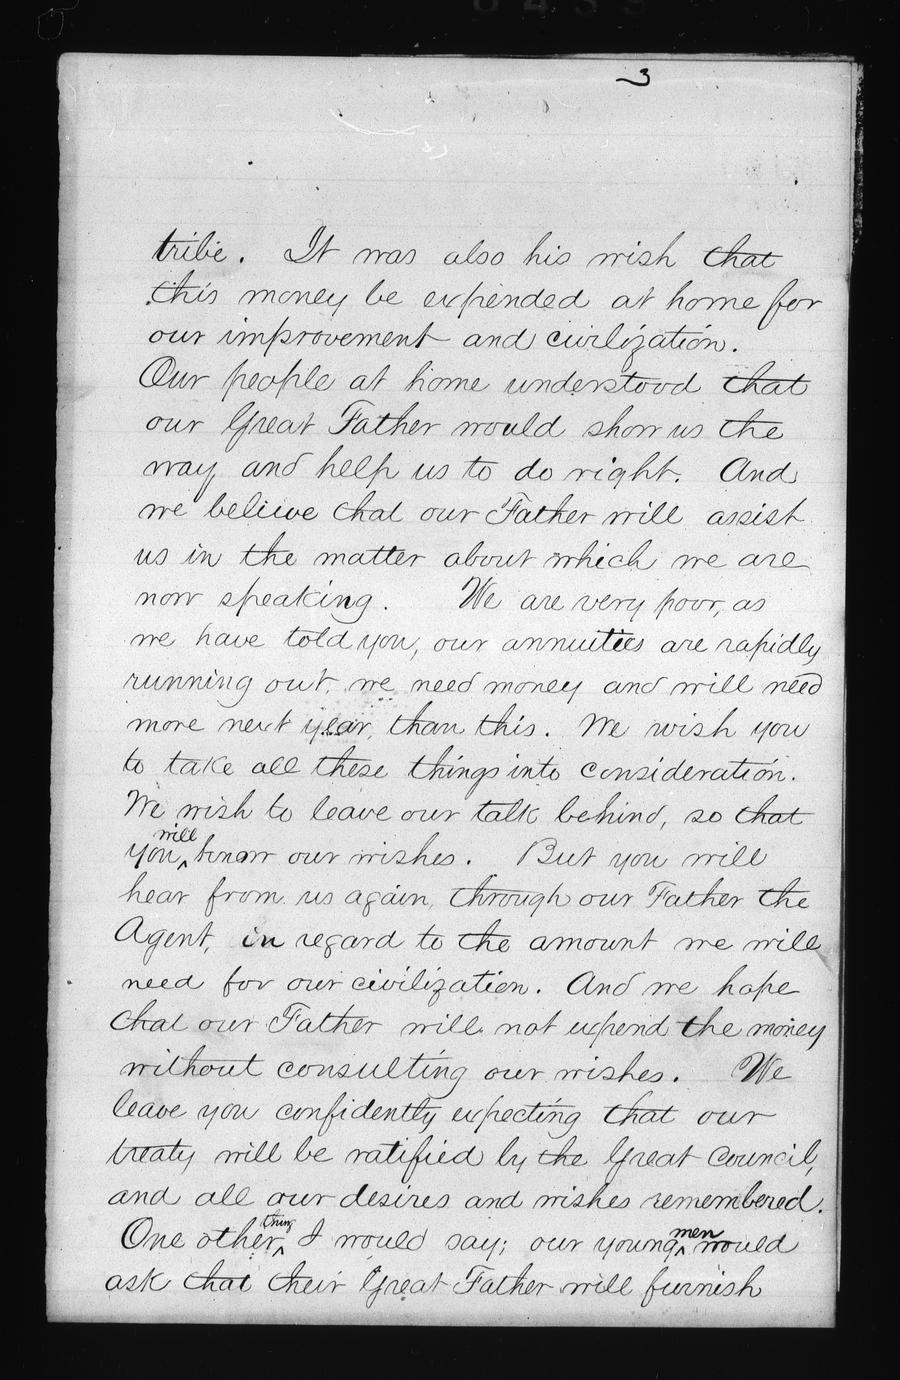 3
tribe. It was also his wish that
this money be expended at home for
our improvement and civilization.
Our people at home understood that
our Great Father would show us the
way and help us to do right. And
we believe that our Father will assist
us in the matter about which we are
now speaking. We are very poor, as
we have told you, our annuities are rapidly
running out, we need money and will need
more next year, than this. We wish you
to take all these things into consideration.
We wish to leave our talk behind, so that
you will know our wishes. But you will
hear from us again, through our Father the
Agent, in regard to the amount we will
need for our civilization. And we hope
that our Father will not expend the money
without consulting our wishes. We
leave you confidently expecting that our
treaty will be ratified by the Great Council,
and all our desires and wishes remembered.
One other thing I would say; our young men would
ask that their Great Father will furnish